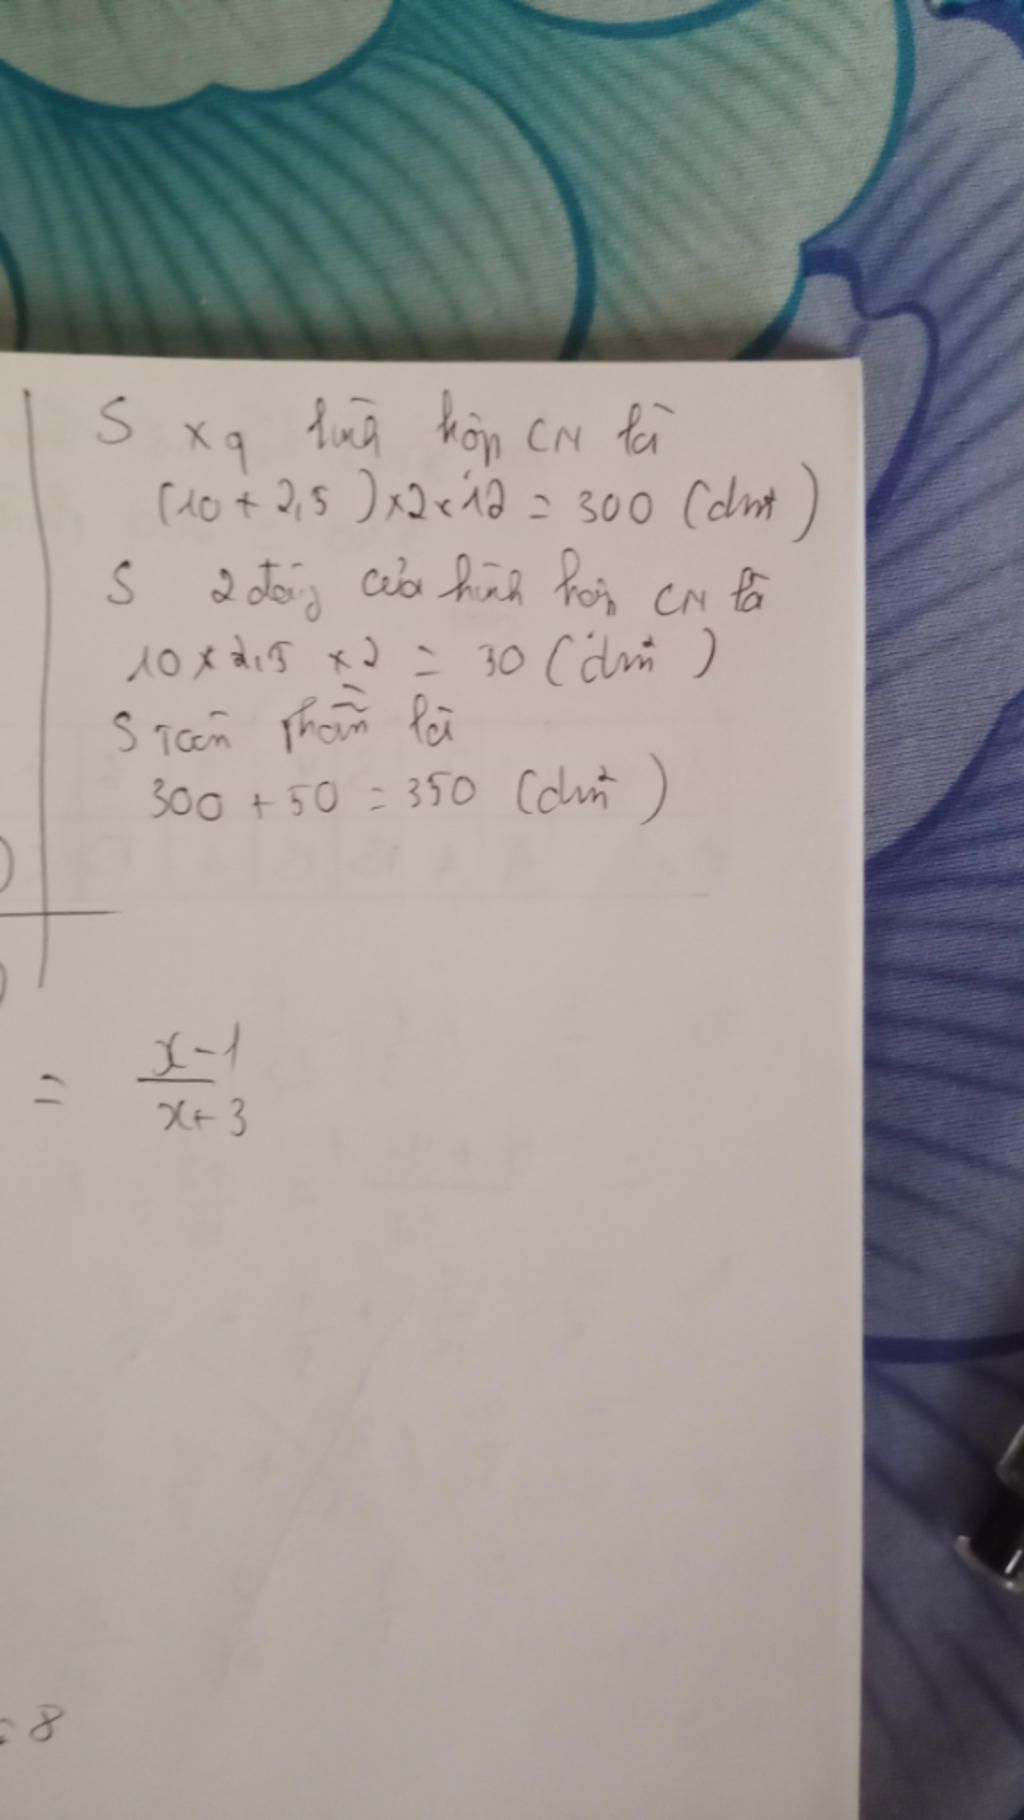 S xq hình hộp CN là
(10 + 2,5) × 2 × 12 = 300 (dm²)
S 2 đáy của hình hộp CN là
10 × 2,5 × 2 = 50 (dm²)
S Toàn Phần là
300 + 50 = 350 (dm²)
= x-1
x+3
= 8